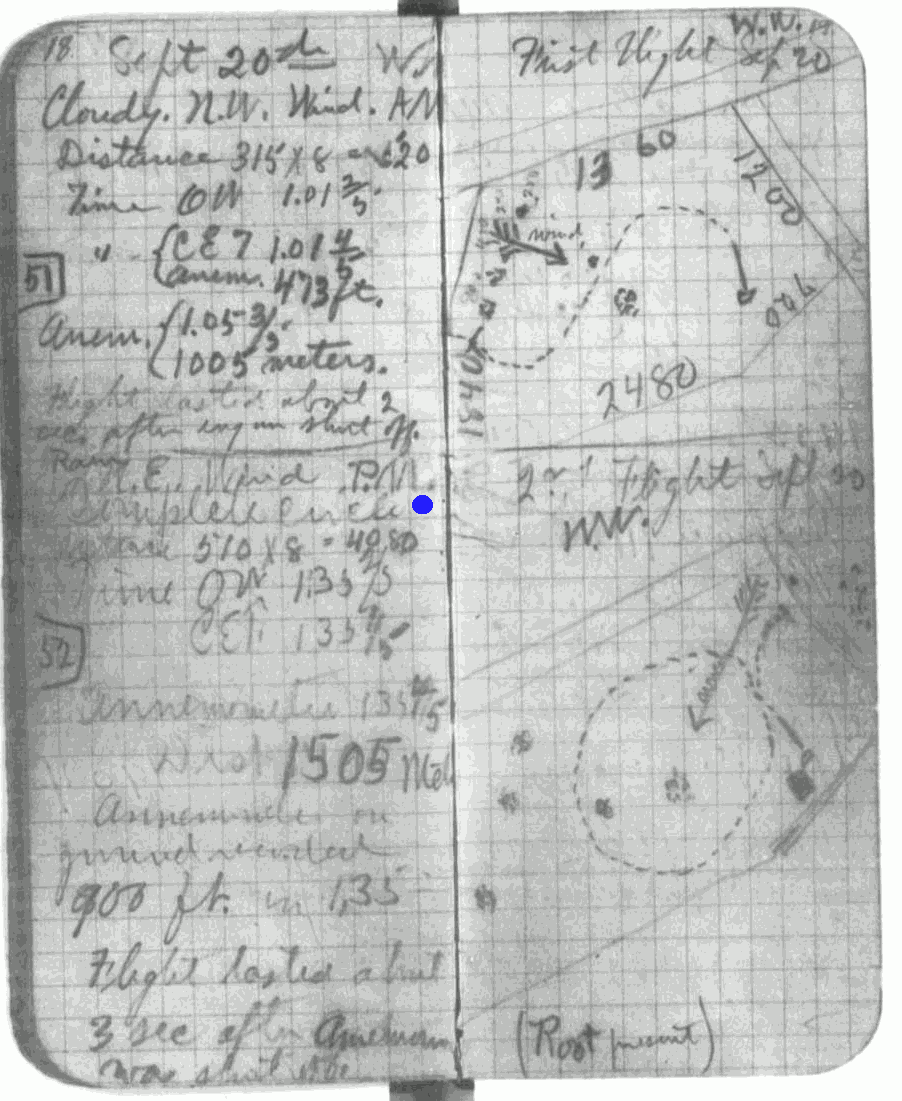 18 Sept 20th W.
Cloudy. N.W. Wind. AM
Distance 315 X 8 = 2520
Time OW 1.01 3/5
" CET 1.01 4/5
anem. 473 ft.
51
Anem. 1.05 3/5
1005 meters.
Flight lasted about 2
sec. after engine shut off.
N.E. Wind P.M.
Complete Circle
Distance 510 X 8 = 4080
Time OW 1.35
CET. 1.35
52
Annemometer 1 35 4/5
Dist 1505 Met
Annemometer on
ground recorded
900 ft. in 1.35
Flight lasted about
3 sec after Annemom
was shut off.
First Flight W.W.
Sep 20
13 60
1200
wind
740
1840
2480
2nd Flight Sept 20
W.W.
wind
(Root present)